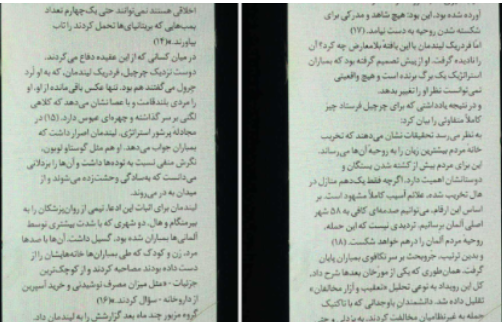 اخلاقی هستند نمی‌توانند حتی یک‌چهارم تعداد
بمب‌هایی که بریتانیایی‌ها تحمل کردند را تاب
بیاورند.»(۱۴)
در میان کسانی که از این عقیده دفاع می‌کردند،
دوست نزدیک چرچیل، فردریک لیندمان، که به او لُرد
چرول می‌گفتند هم بود. تنها عکس باقی‌مانده از او، او
را مردی بلندقامت و با عصا نشان می‌دهد که کلاهی
لگنی بر سر گذاشته و چهره‌ای عبوس دارد.(۱۵) در
مجادله پرشور استراتژی، لیندمان اصرار داشت که
بمباران جواب می‌دهد. او هم مثل گوستاو لوبون،
نگرش منفی نسبت به توده‌ها داشت و آن‌ها را بزدلانی
می‌دانست که به‌سادگی وحشت‌زده می‌شوند و از
میدان به در می‌روند.
لیندمان برای اثبات این ادعا، تیمی از روان‌پزشکان را به
بیرمنگام و هال، دو شهری که با شدت بیشتری توسط
آلمانی‌ها بمباران شده بود، گسیل داشت. آن‌ها با صدها
مرد، زن و کودک که طی بمباران‌ها خانه‌هایشان را از
دست داده بودند مصاحبه کردند و از کوچک‌ترین
جزئیات - «مثل میزان مصرف نوشیدنی و خرید آسپرین
از داروخانه - سؤال کردند.»(۱۶)
گروه مزبور چند ماه بعد گزارشش را به لیندمان داد.
آورده شده بود، این بود: هیچ شاهد و مدرکی برای
شکسته شدن روحیه به دست نیامد. (۱۷)
اما فردریک لیندمان با این یافته بلامعارض چه کرد؟ آن
را نادیده گرفت. او از پیش تصمیم گرفته بود که بمباران
استراتژیک یک برگ برنده است و هیچ واقعیتی
نمی‌توانست نظر او را تغییر بدهد.
و در نتیجه یادداشتی که برای چرچیل فرستاد چیز
کاملاً متفاوتی را بیان کرد:
به نظر می‌رسد تحقیقات نشان می‌دهند که تخریب
خانه مردم بیشترین زیان را به روحیه آن‌ها می‌رساند.
این برای مردم بیش از کشته شدن بستگان و
دوستانشان اهمیت دارد. اگرچه فقط یک‌دهم منازل در
هال تخریب شده، علائم آسیب کاملاً مشهود است. بر
اساس این ارقام، می‌توانیم صدمه‌ای کافی به ۵۸ شهر
اصلی آلمان برسانیم. تردیدی نیست که این حمله،
روحیه مردم آلمان را درهم خواهد شکست. (۱۸)
و بدین ترتیب، جروبحث بر سر تکافوی بمباران پایان
گرفت. همان‌طوری که یکی از مورخان بعدها شرح داد،
کل این رویداد به نوعی تحلیل «تعقیب و آزار مخالفان»
تقلیل داده شد. دانشمندان باوجدانی که با تاکتیک
حمله به غیرنظامیان مخالفت کردند، به بزدلی و حتی